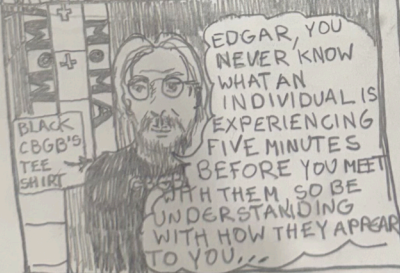 MoMA
BLACK
CBGB'S
TEE
SHIRT
EDGAR, YOU
NEVER KNOW
WHAT AN
INDIVIDUAL IS
EXPERIENCING
FIVE MINUTES
BEFORE YOU MEET
WITH THEM SO BE
UNDERSTANDING
WITH HOW THEY APPEAR
TO YOU...